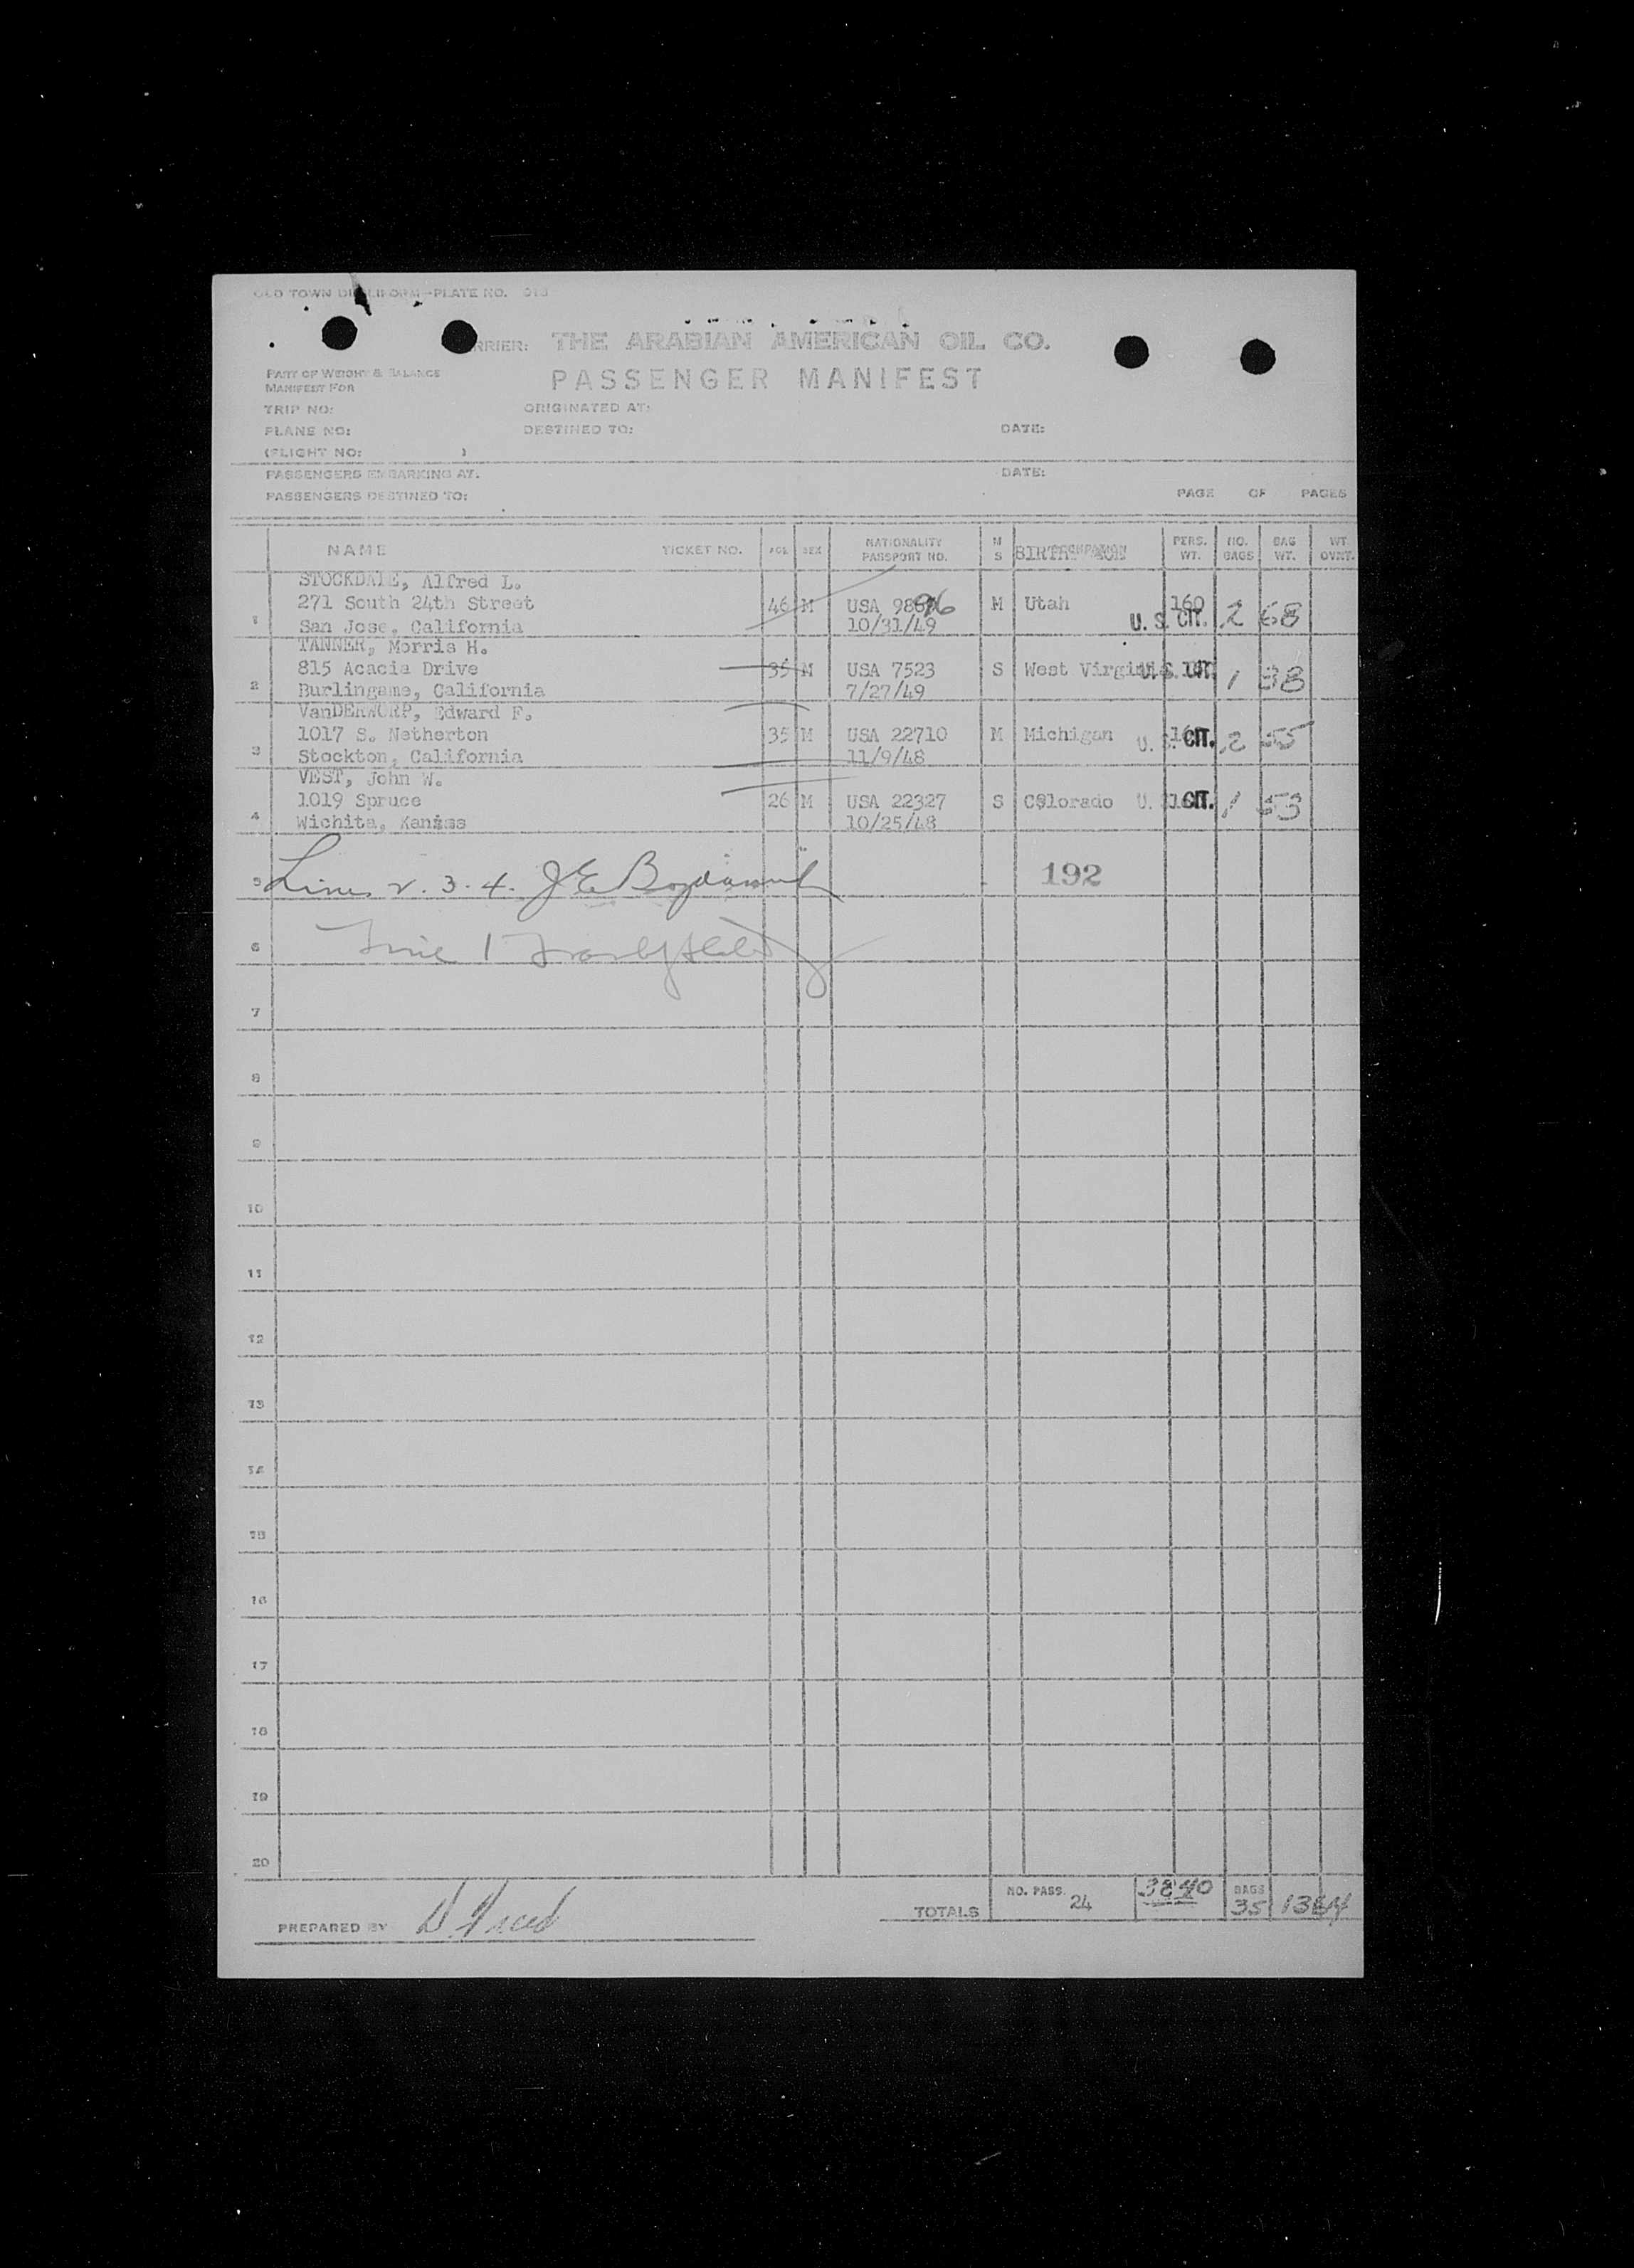 OLD TOWN PLATE NO.
CARRIER: THE ARABIAN AMERICAN OIL CO.
PART OF WEIGHT & BALANCE
MANIFEST FOR
PASSENGER MANIFEST
TRIP NO: ORIGINATED AT:
PLANE NO: DESTINED TO: DATE:
(FLIGHT NO: )
PASSENGERS EMBARKING AT: DATE:
PASSENGERS DESTINED TO: PAGE OF PAGES
NAME TICKET NO. AGE SEX NATIONALITY PASSPORT NO. M S BIRTH PERS. WT. NO. BAGS BAG WT. WT. OVNT.
STOCKDALE, Alfred L.
271 South 24th Street 46 M USA 9896 M Utah 160
1 San Jose, California 10/31/49 U. S. CIT. 2 68
TANNER, Morris H.
815 Acacia Drive 35 M USA 7523 S West Virginia U. S. CIT. 1 38
2 Burlingame, California 7/27/49
VanDERWORP, Edward F.
1017 S. Netherton 35 M USA 22710 M Michigan U. S. CIT. 2 55
3 Stockton, California 11/9/48
VEST, John W.
1019 Spruce 26 M USA 22327 S Colorado U. S. CIT. 1 53
4 Wichita, Kansas 10/25/48
5 Lines 2. 3. 4. J E 192
6 Line 1
7
8
9
10
11
12
13
14
15
16
17
18
19
20
PREPARED BY TOTALS NO. PASS. 24 3840 BAGS 35